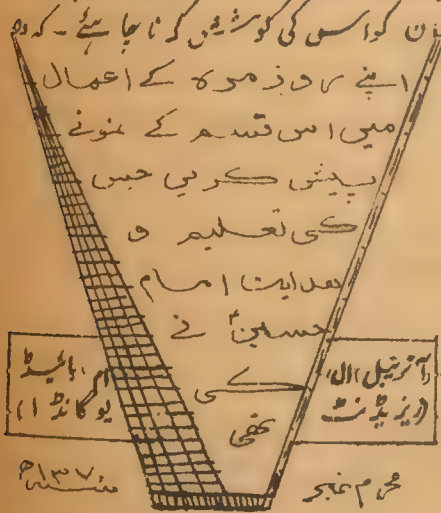 کو اس کی کوشش کرنا چاہئے۔ کہ وہ
اپنے روزمرہ کے اعمال
میں اس قسم کے نمونے
پیش کریں جس
کی تعلیم و
ہدایت امام
حسینؑ نے
کی
تھی
(آنریبل ال،
ریزیڈنٹ
ام، بائیڈ
یوگانڈا)
محرم نمبر